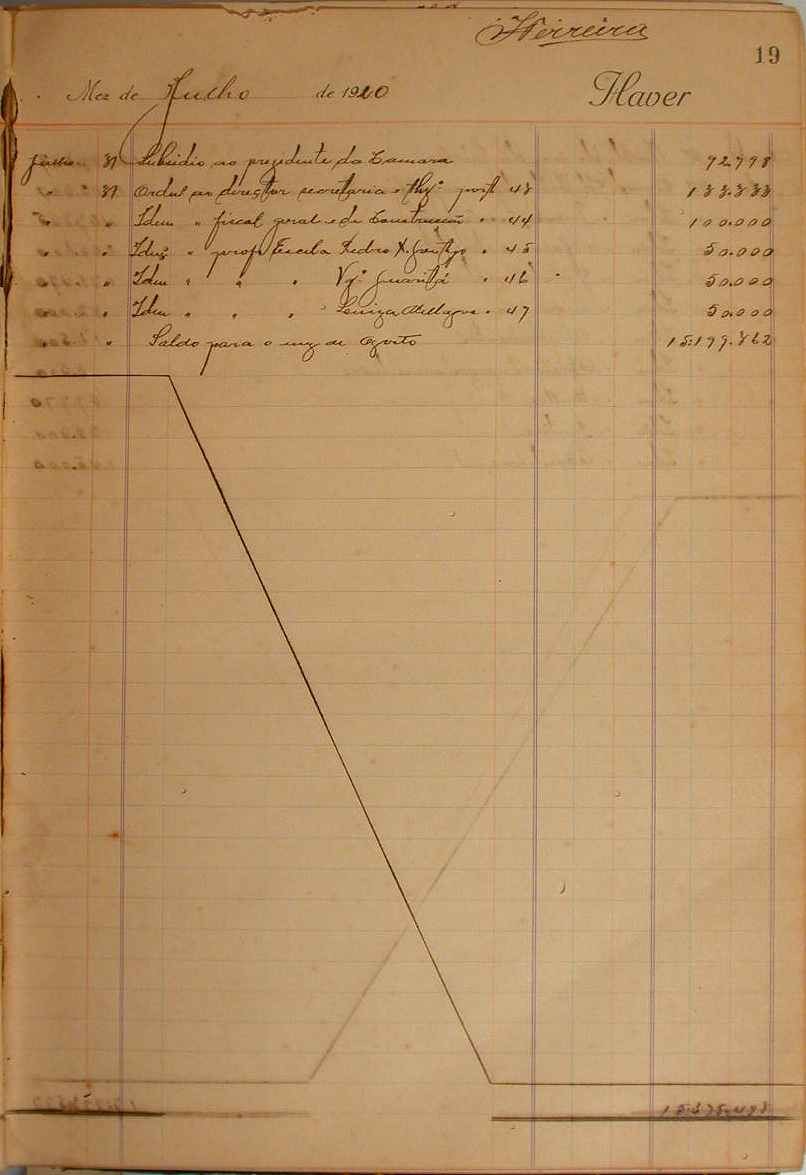 Ferreira
19
Mez de Julho de 1920 Haver
Julho 31 Subsidio ao prezidente da Camara 92.998
" 31 Orden ao director secretaria e port 43 133.333
" " Idem " fiscal geral e de Construcção " 44 100.000
" " Idem " prof Escola Pedro X. " 45 50.000
" " Idem " " " Guaritá " 46 50.000
" " Idem " " " Luiza " 47 50.000
" " Saldo para o mez de Agosto 15:199.862